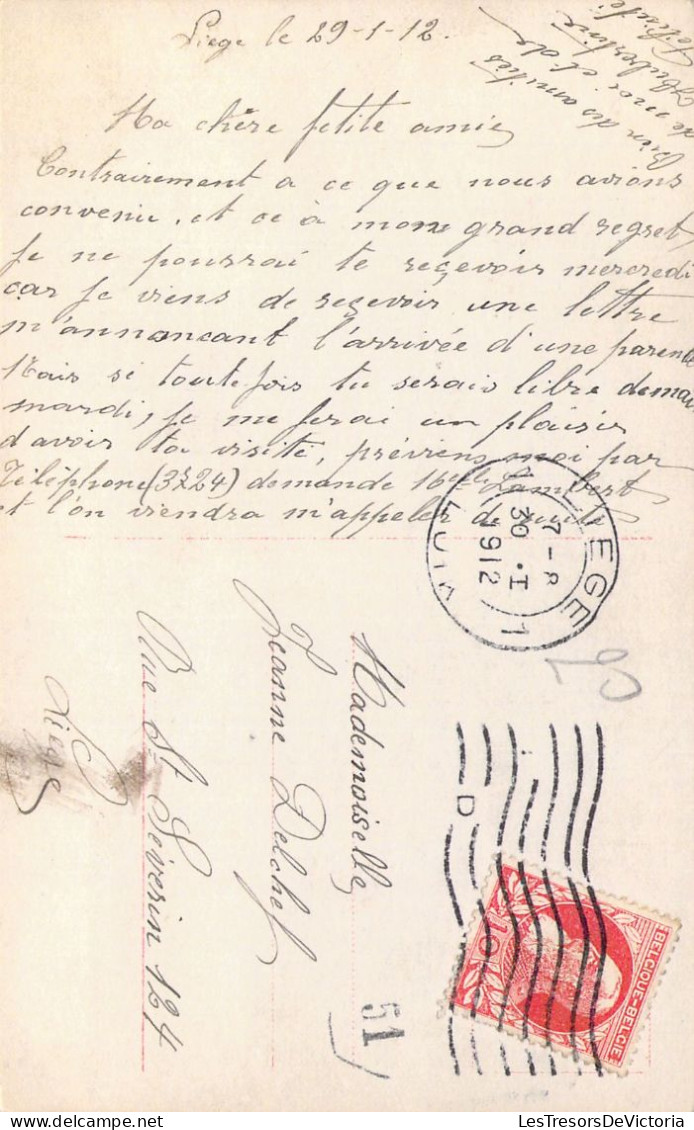 Liege le 29-1-12.
Ma chère petite amie,
Contrairement a ce que nous avions
convenu, et ce à mon grand regret,
je ne pourrai te reçevoir mercredi
car je viens de reçevoir une lettre
m'annoncant l'arrivée d'une parente
Mais si toutefois tu serais libre demain
mardi, je me ferai un plaisir
d'avoir ta visite, préviens moi par
Téléphone (3724) demande Lambert
et l'on viendra m'appeler de suite
Bien des amitiés
de moi et de
Mademoiselle
Jeanne Delchef
Rue St Séverin 124
Liège
LIEGE 1
7-8
30.I
1912
LUIK
51
D
BELGIQUE-BELGIË
10
LesTresorsDeVictoria